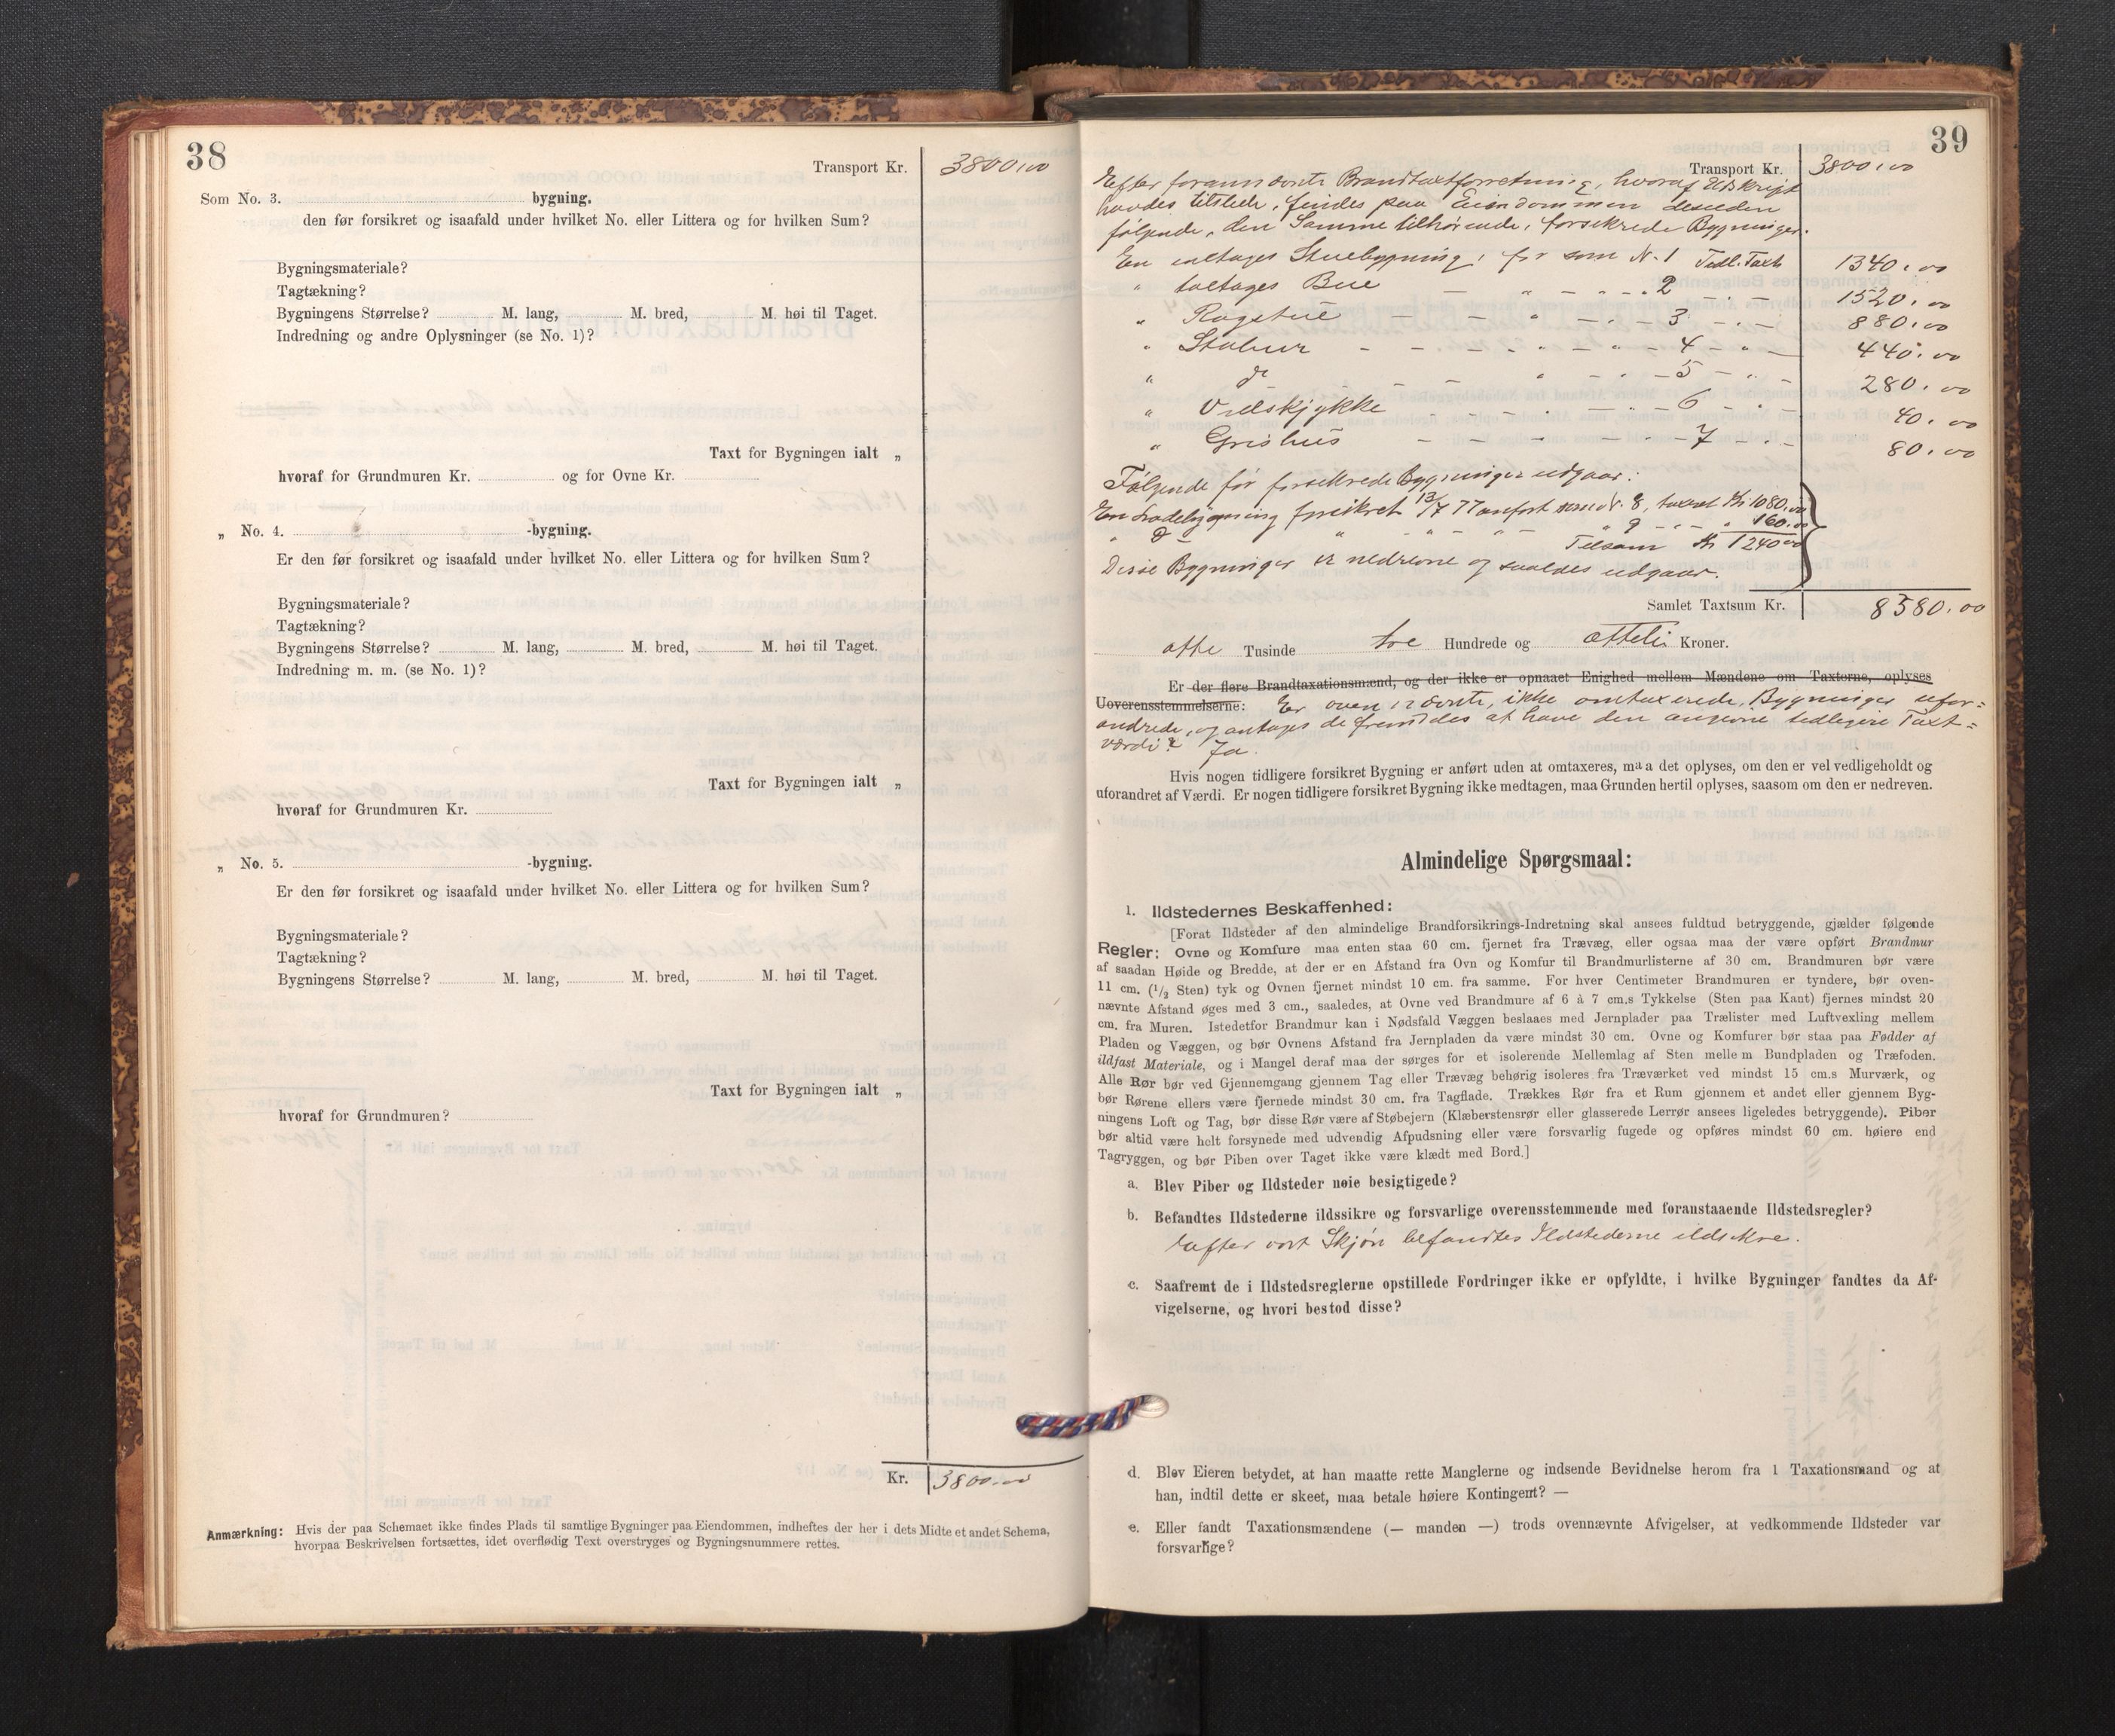 38
Transport Kr. 3800,00
Som No. 3. bygning.
den før forsikret og isaafald under hvilket No. eller Littera og for hvilken Sum?
Bygningsmateriale?
Tagtækning?
Bygningens Størrelse? M. lang, M. bred, M. høi til Taget.
Indredning og andre Oplysninger (se No. 1)?
Taxt for Bygningen ialt „
hvoraf for Grundmuren Kr. og for Ovne Kr.
„ No. 4. -bygning.
Er den før forsikret og isaafald under hvilket No. eller Littera og for hvilken Sum?
Bygningsmateriale?
Tagtækning?
Bygningens Størrelse? M. lang, M. bred, M. høi til Taget.
Indredning m. m. (se No. 1)?
Taxt for Bygningen ialt „
hvoraf for Grundmuren Kr.
„ No. 5. -bygning.
Er den før forsikret og isaafald under hvilket No. eller Littera og for hvilken Sum?
Bygningsmateriale?
Tagtækning?
Bygningens Størrelse? M. lang, M. bred, M. høi til Taget.
Taxt for Bygningen ialt „
hvoraf for Grundmuren?
Kr. 3800,00
Anmærkning: Hvis der paa Schemaet ikke findes Plads til samtlige Bygninger paa Eiendommen, indheftes der her i dets Midte et andet Schema,
hvorpaa Beskrivelsen fortsættes, idet overflødig Text overstryges og Bygningsnummere rettes.
39
Transport Kr. 3800,00
Efter forannævnte Brandtaxtforretning, hvoraf Udskrift
havdes tilstede, findes paa Eiendommen desuden
følgende, den Samme tilhørende, forsikrede Bygninger.
En enetages Stuebygning, før som N. 1 Tidl. Taxt 1340,00
" toetages Bue — " — " — 2 — " — 1520,00
" Røgstue — — " — " — 3 — " — 880,00
" Stabur — — — " — " — 4 — " — 440,00
" do — — " — " — 5 — " — 280,00
" Vedskjykke — — " — " — 6 — " — 40,00
" Grishus — — — — " — 7 — " — 80,00
Følgende før forsikrede Bygninger udgaar:
En Ladebygning forsikret 13/7 77 anført som N. 8, taxeret Kr 1080,00
" do " " — " — " 9 — " — " 160,00
Tilsam Kr 1240,00
Disse Bygninger er nedrevne og saaledes udgaar.
Samlet Taxtsum Kr. 8380,00
otte Tusinde tre Hundrede og otteti Kroner.
Er der flere Brandtaxationsmænd, og der ikke er opnaaet Enighed mellem Mændene om Taxterne, oplyses
Uoverensstemmelserne: Er ovennævnte, ikke omtaxerede, Bygninger ufor-
andrede, og antages de fremdeles at have den angivne tidligere Taxt-
værdi? Ja.
Hvis nogen tidligere forsikret Bygning er anført uden at omtaxeres, maa det oplyses, om den er vel vedligeholdt og
uforandret af Værdi. Er nogen tidligere forsikret Bygning ikke medtagen, maa Grunden hertil oplyses, saasom om den er nedreven.
Almindelige Spørgsmaal:
1. Ildstedernes Beskaffenhed:
[Forat Ildsteder af den almindelige Brandforsikrings-Indretning skal ansees fuldtud betryggende, gjælder følgende
Regler: Ovne og Komfure maa enten staa 60 cm. fjernet fra Trævæg, eller ogsaa maa der være opført Brandmur
af saadan Høide og Bredde, at der er en Afstand fra Ovn og Komfur til Brandmurlisterne af 30 cm. Brandmuren bør være
11 cm. (1/2 Sten) tyk og Ovnen fjernet mindst 10 cm. fra samme. For hver Centimeter Brandmuren er tyndere, bør oven-
nævnte Afstand øges med 3 cm., saaledes, at Ovne ved Brandmure af 6 à 7 cm.s Tykkelse (Sten paa Kant) fjernes mindst 20
cm. fra Muren. Istedetfor Brandmur kan i Nødsfald Væggen beslaaes med Jernplader paa Trælister med Luftvexling mellem
Pladen og Væggen, og bør Ovnens Afstand fra Jernpladen da være mindst 30 cm. Ovne og Komfurer bør staa paa Fødder af
ildfast Materiale, og i Mangel deraf maa der sørges for et isolerende Mellemlag af Sten mellem Bundpladen og Træfoden.
Alle Rør bør ved Gjennemgang gjennem Tag eller Trævæg behørig isoleres fra Træværket ved mindst 15 cm.s Murværk, og
bør Rørene ellers være fjernede mindst 30 cm. fra Tagflade. Trækkes Rør fra et Rum gjennem et andet eller gjennem Byg-
ningens Loft og Tag, bør disse Rør være af Støbejern (Klæberstensrør eller glasserede Lerrør ansees ligeledes betryggende). Piber
bør altid være helt forsynede med udvendig Afpudsning eller være forsvarlig fugede og opføres mindst 60 cm. høiere end
Tagryggen, og bør Piben over Taget ikke være klædt med Bord.]
a. Blev Piber og Ildsteder nøie besigtigede?
b. Befandtes Ildstederne ildssikre og forsvarlige overensstemmende med foranstaaende Ildstedsregler?
Efter vort Skjøn befandtes Ildstederne ildsikre.
c. Saafremt de i Ildstedsreglerne opstillede Fordringer ikke er opfyldte, i hvilke Bygninger fandtes da Af-
vigelserne, og hvori bestod disse?
d. Blev Eieren betydet, at han maatte rette Manglerne og indsende Bevidnelse herom fra 1 Taxationsmand og at
han, indtil dette er skeet, maa betale høiere Kontingent? —
e. Eller fandt Taxationsmændene (— manden —) trods ovennævnte Afvigelser, at vedkommende Ildsteder var
forsvarlige?